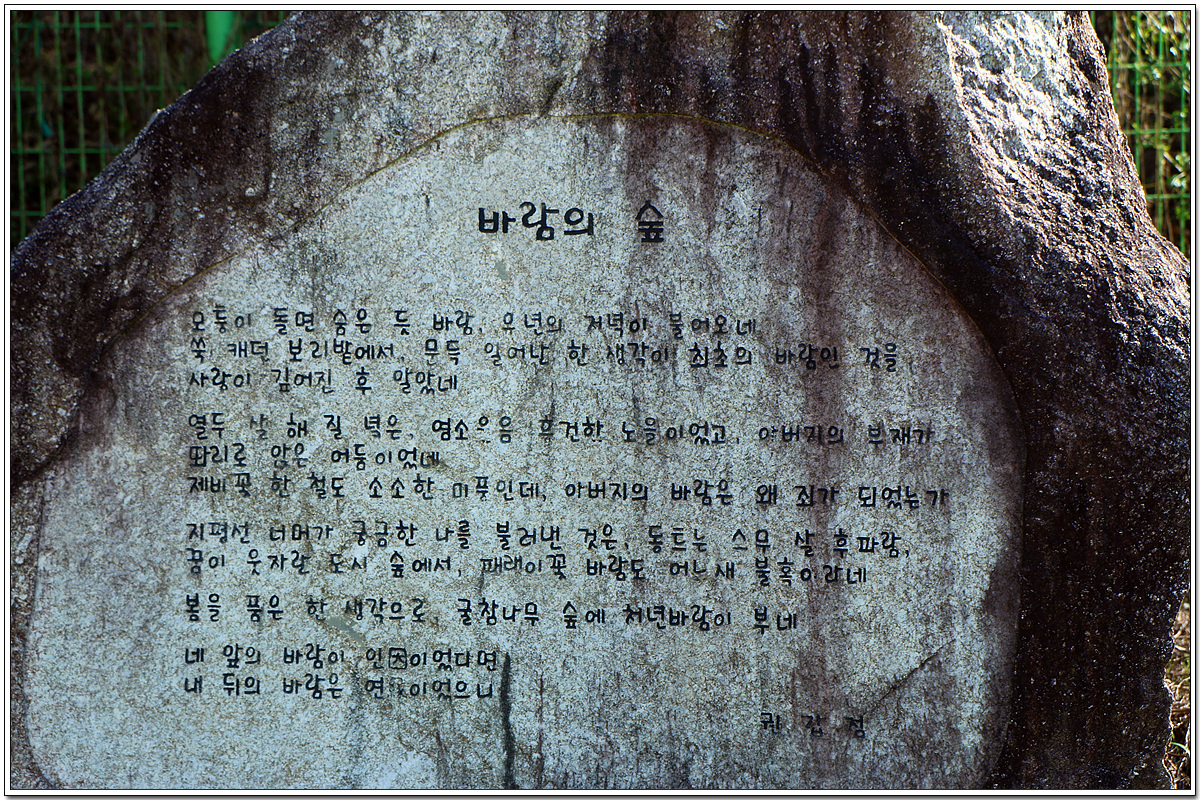 바람의 숲
모퉁이 돌면 숨은 듯 바람, 유년의 저녁이 불어오네
쑥 캐던 보리밭에서, 무득 일어난 한 생각이 최초의 바람인 것을
사랑이 깊어진 후 알았네
열두 살 해 질 녘은, 염소 흥건한 노을이었고, 아버지의 부재가
똬리로 앉은 어둠이었네
제비꽃 한 철도 소소한 미풍인데, 아버지의 바람은 왜 죄가 되었는가
지평선 너머가 궁금한 나를 불러낸 것은, 동트는 스무 살 휘파람,
꿈이 웃자란 도시 숲에서, 패래이꽃 바람도 어느새 불혹이라네
봄을 품은 한 생각으로, 굴참나무 숲에 천년바람이 부네
네 앞의 바람이 인因이었다면
내 뒤의 바람은 연 이었으니